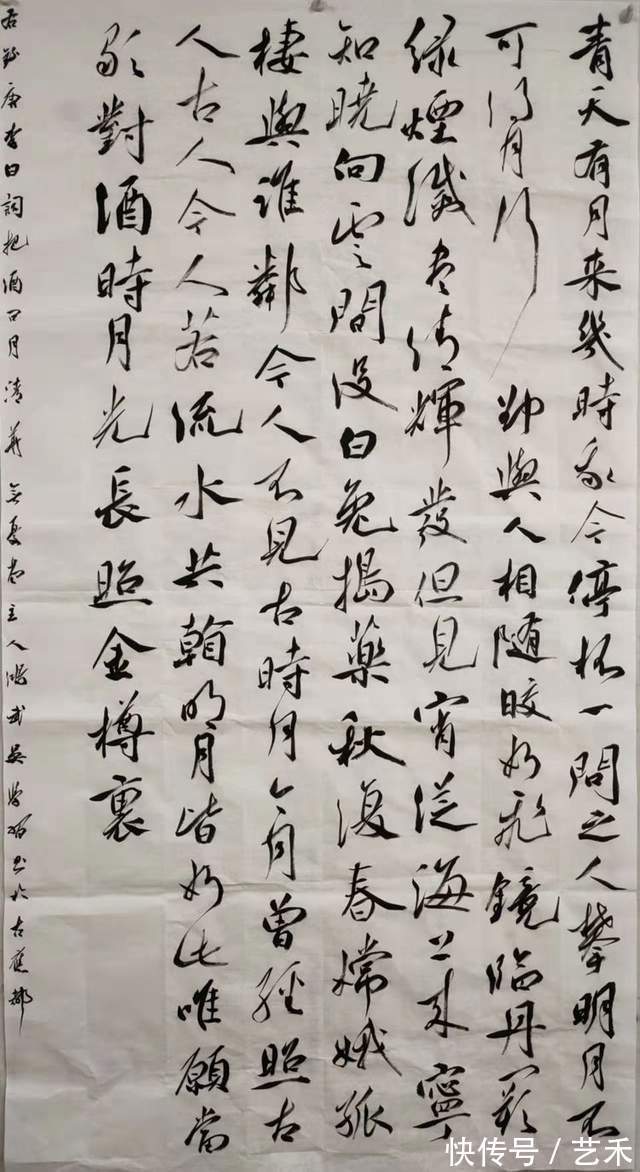 青天有月来幾時我今停杯一問之人攀明月不
可得月行却與人相随皎如飛鏡臨丹闕
緑煙滅盡清輝發但見宵從海上来寧
知曉向雲間没白兔搗藥秋復春嫦娥孤
棲與誰鄰今人不見古時月今月曾經照古
人古人今人若流水共翰明月皆如此唯願當
歌對酒時月光長照金樽裏
右錄唐李白詞把酒問月清主人鴻武书於古都
快传号/艺禾